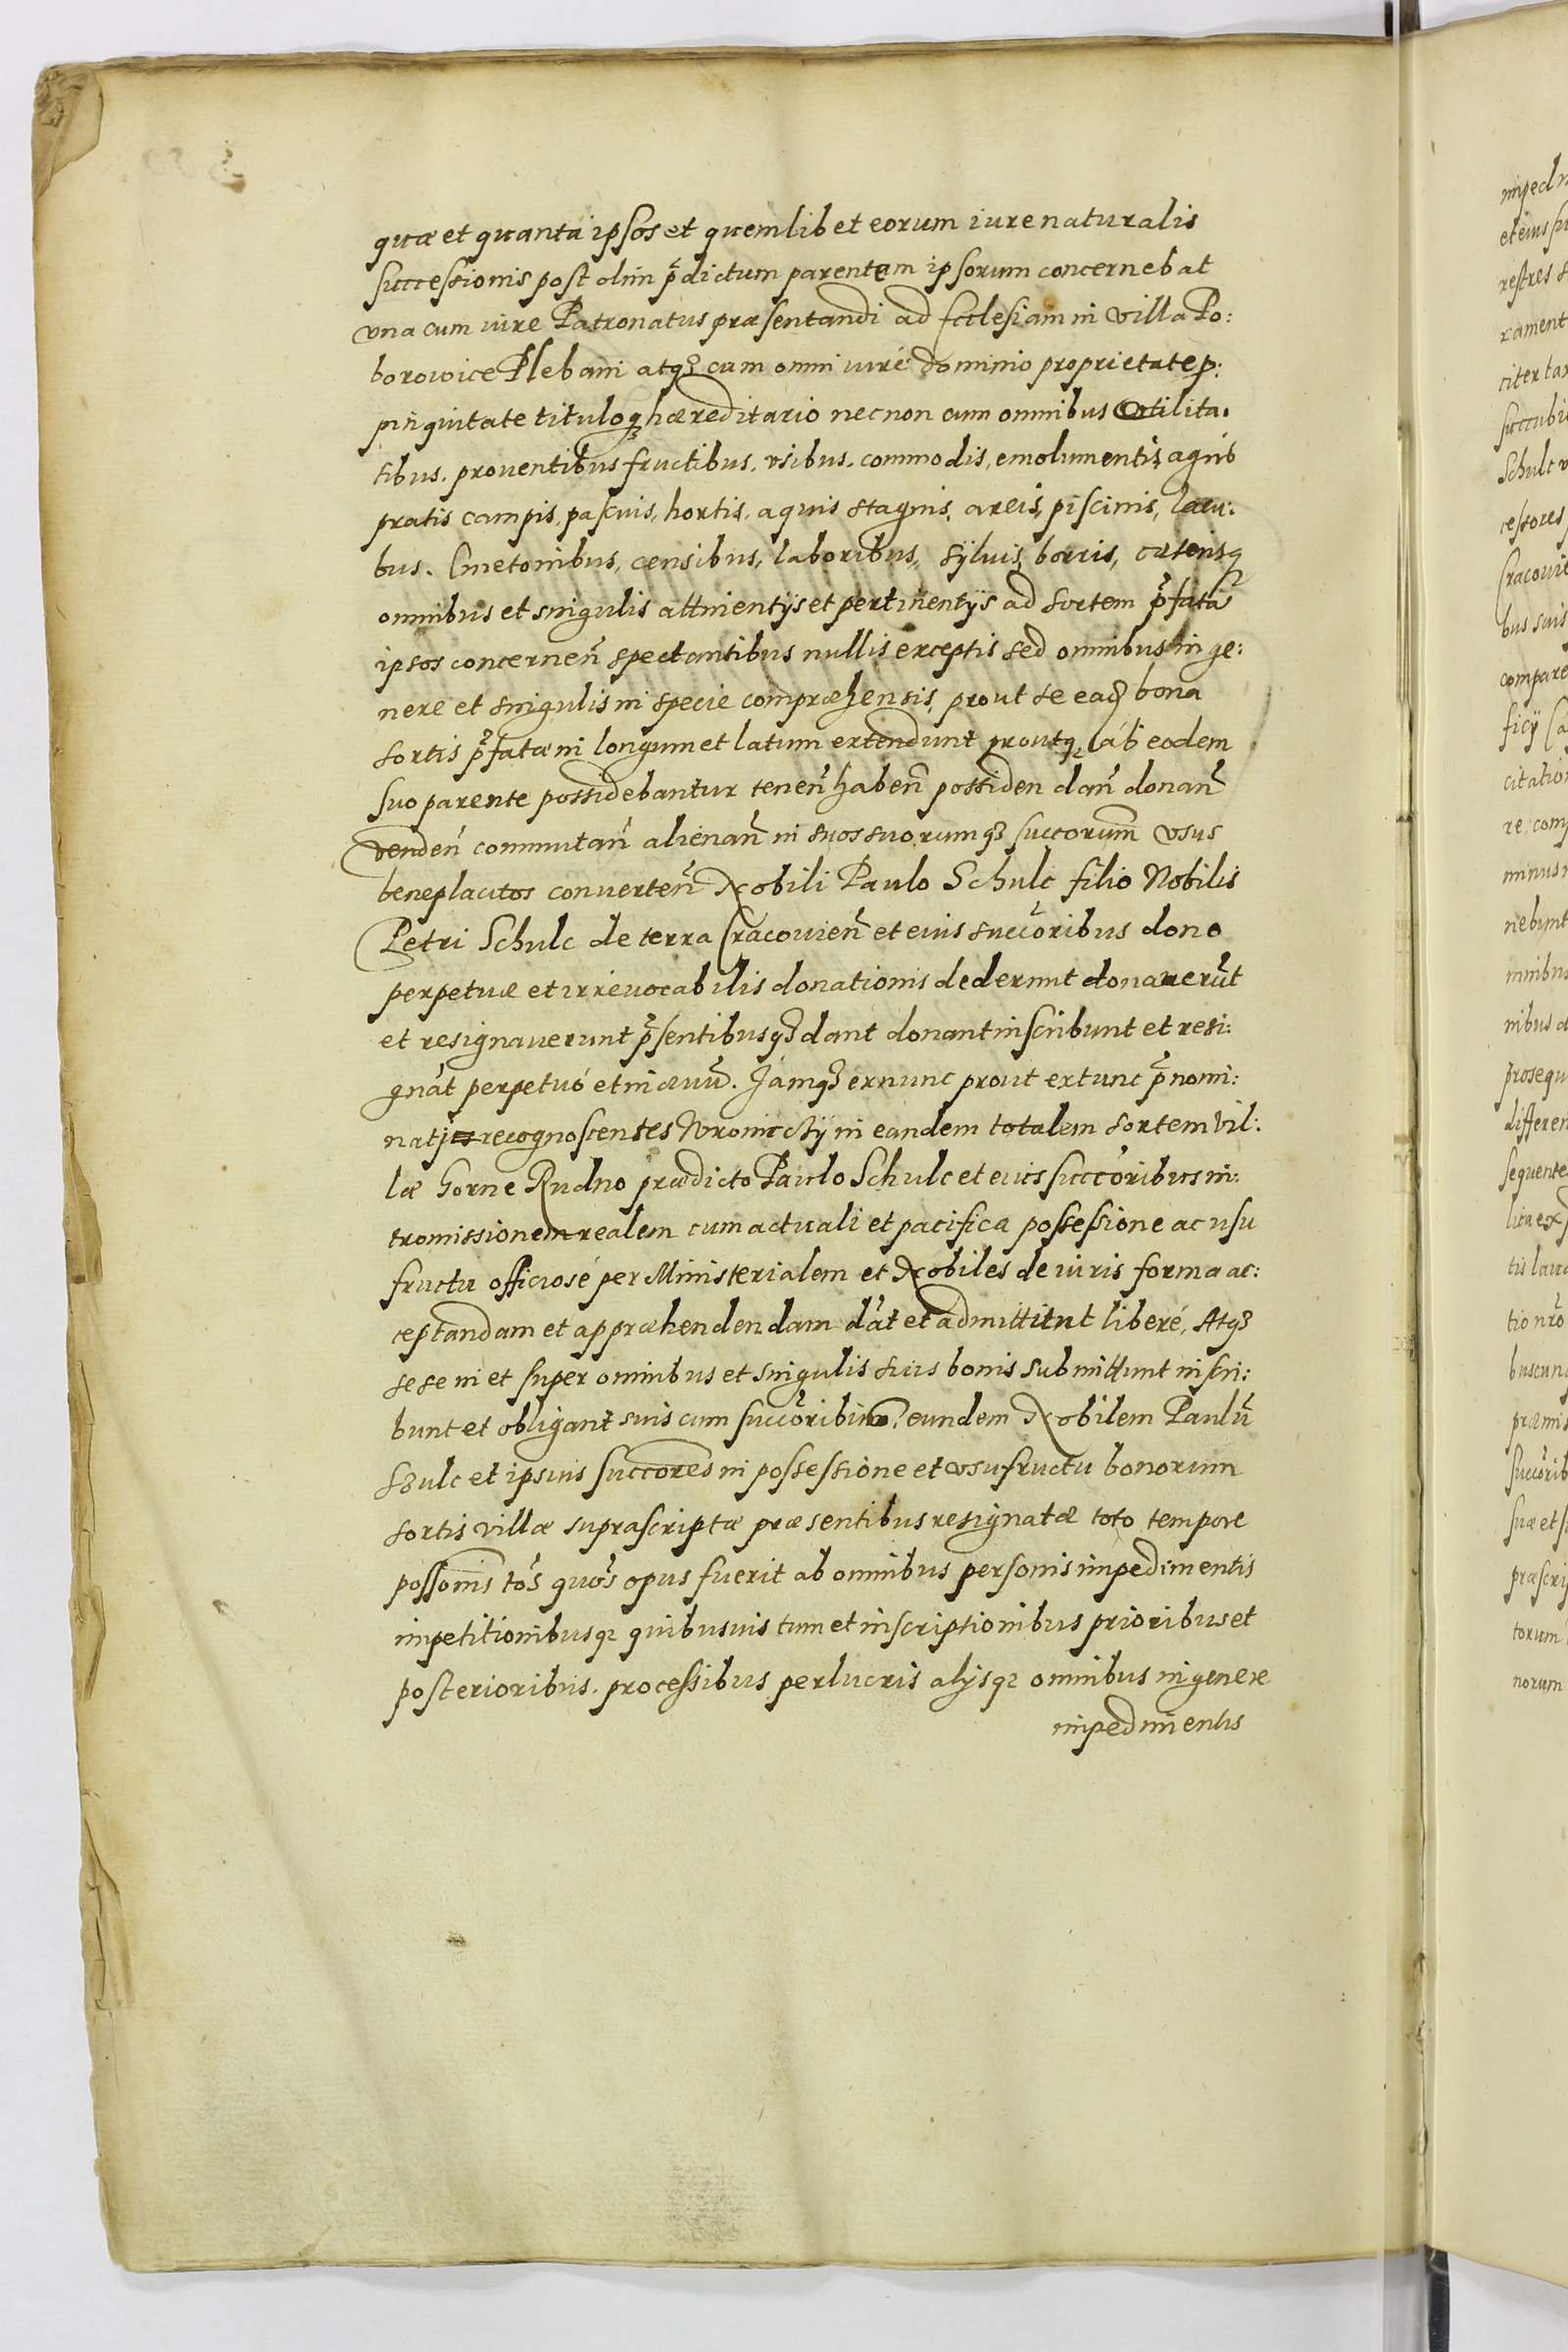 quæ et quanta ipsos et quemlibet eorum iure naturalis
successionis post olim p̃dictum parentem ipsorum concernebat
vna cum iure Patronatus præsentandi ad Ecclesiam in villa Po:
borowice Plebani atq₃ cum omni iuré dominio proprietate p:
pinquitate tituloq₃ hæreditario necnon cum omnibus vtilita.
tibus. prouentibus fructibus. vsibus. commodis, emolumentis, agris
pratis campis, pascuis, hortis, aquis stagnis, areis, piscinis, lacu:
bus. Cmetonibus, censibus, laboribus, sÿluis, borris, cæterisq₃
omnibus et singulis attinentÿs et pertinentÿs ad sortem p̃fatã
ipsos concerneñ spectantibus nullis exceptis sed omnibus in ge:
nere et singulis in specie compræhensis, prout se eaq₃ bona
sortis p̃fatæ in longum et latum extendunt proutq₃ ab eodem
suo parente possidebantur teneñ habeñ possiden dañ donañ
vendeñ commutañ alienañ in suos suorumq₃ succorum̃ vsus
beneplacitos conuerteñ Nobili Paulo Schulc filio Nobilis
Petri Schulc de terra Cracouieñ et eius succõribus dono
perpetuæ et irreuocabilis donationis dederunt donauerũt
et resignauerunt p̃sentibusq₃ dant donant inscribunt et resi:
gnãt perpetuó et in æuũ. Jamq₃ ex nunc prout ex tunc p̃nomi:
natj recognoscentes Wronicckÿ in eandem totalem sortem vil:
læ Gorne Rudno prædicto Paulo Schulc et eius succõribus in:
tromissionem realem cum actuali et pacifica possessione ac usu
fructu officiosé per Ministerialem et Nobiles de iuris forma ac:
ceptandam et appræhendendam dãt et admittunt liberé, Atq₃
sese in et super omnibus et singulis suis bonis submittunt inscri:
bunt et obligant suis cum succõribus eundem Nobilem Paulũ
Szulc et ipsius succores in possessione et vsufructu bonorum
sortis villæ suprascriptæ præsentibus resignatæ toto tempore
possonis tõs quõs opus fuerit ab omnibus personis impedimentis
impetitionibusq₃ quibusuis tum et inscriptionibus prioribus et
posterioribus. processibus perlucris alÿsq₃ omnibus in genere
impedimentis